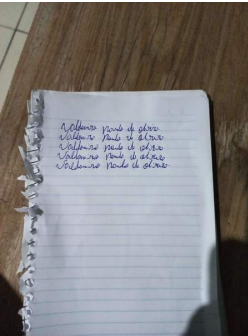 Valdemiro Paulo de oliveira
Valdemiro Paulo de oliveira
Valdemiro Paulo de oliveira
Valdemiro Paulo de oliveira
Valdemiro Paulo de oliveira